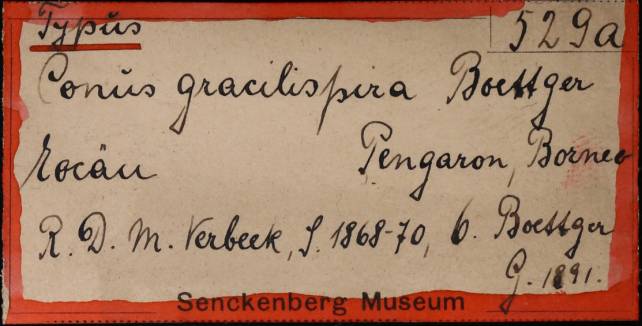 Typus
529a
Conus gracilispira Boettger
Eocän Pengaron, Borneo
R. D. M. Verbeek, S. 1868-70, O. Boettger
G. 1891.
Senckenberg Museum